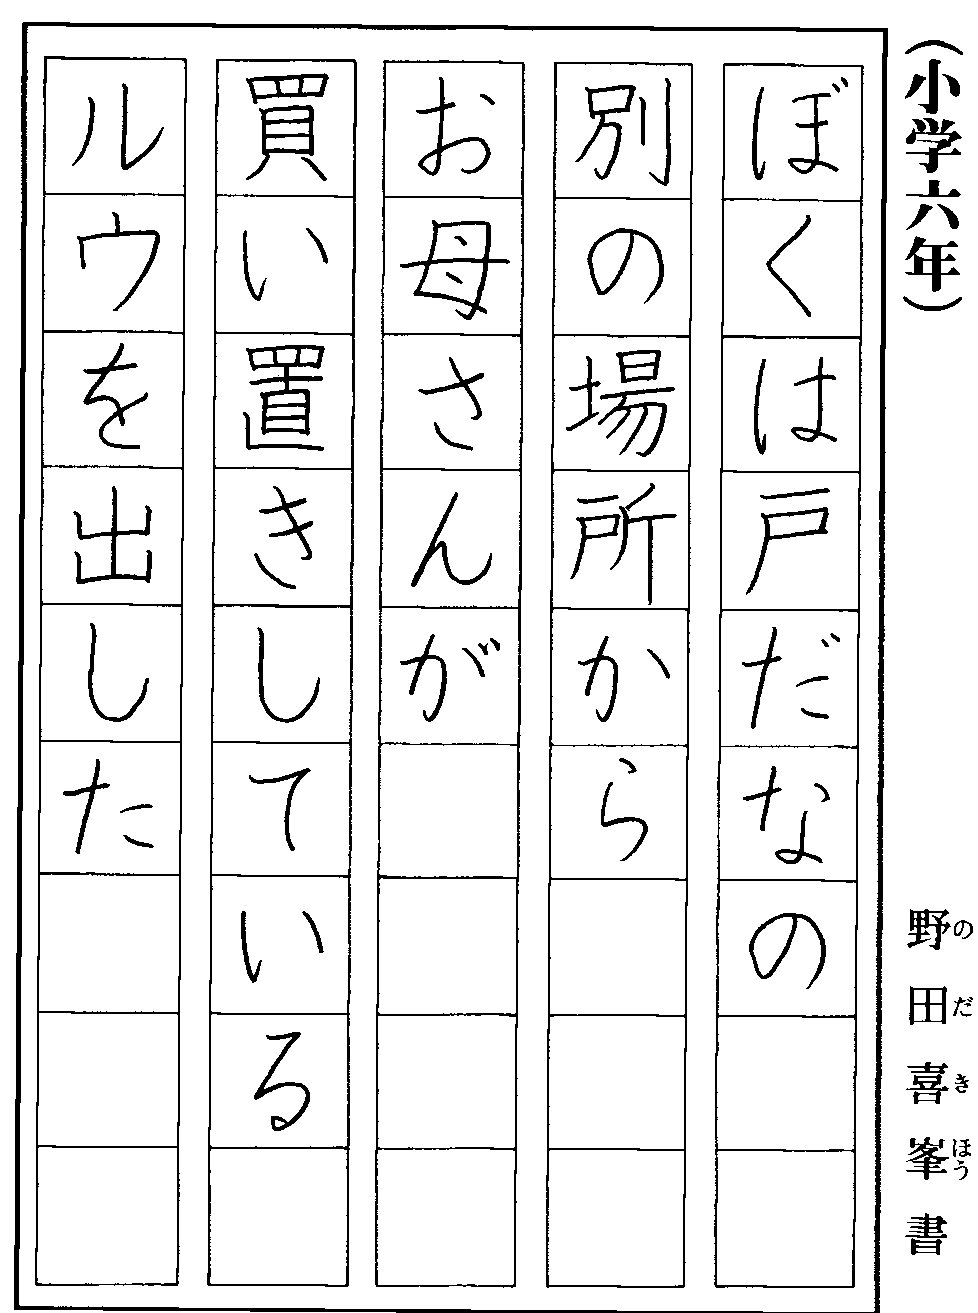 （小学六年）
野田喜峯書
のだきほう
ぼくは戸だなの
別の場所から
お母さんが
買い置きしている
ルウを出した